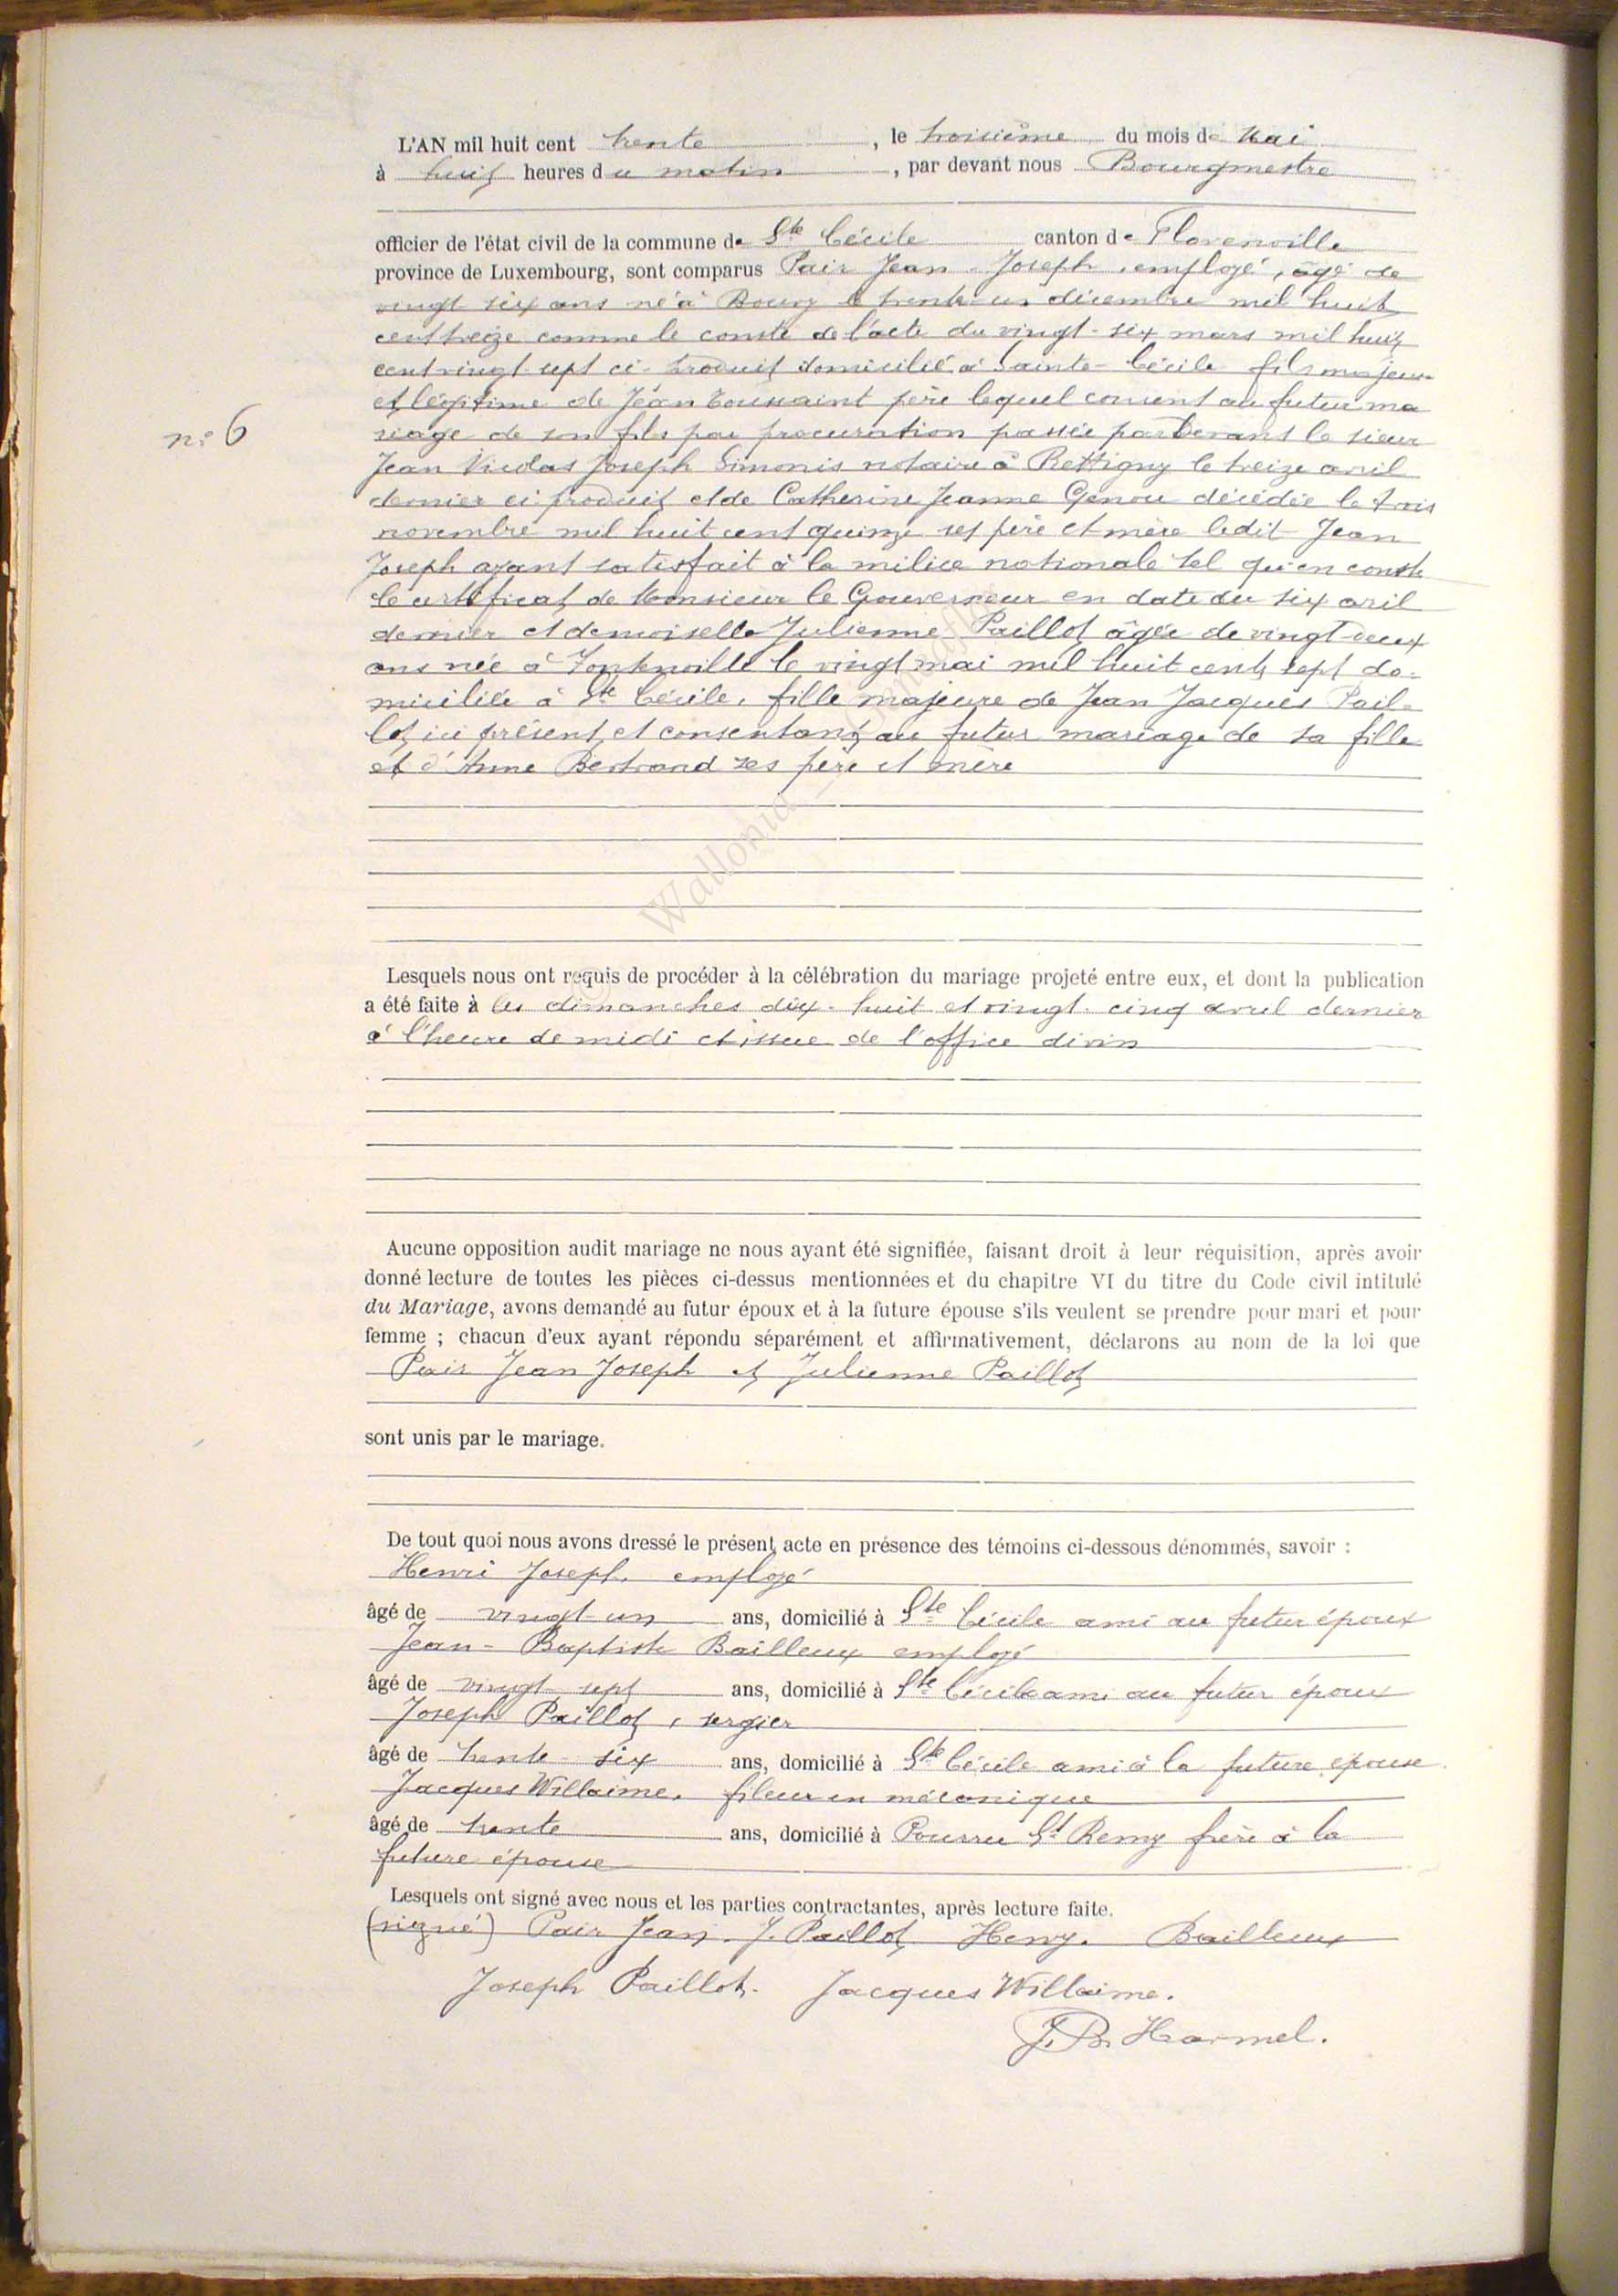 L'AN mil huit cent trente, le troisième du mois de Mai
à huit heures du matin, par devant nous Bourgmestre
officier de l'état civil de la commune de Ste Cécile canton de Florenville
province de Luxembourg, sont comparus Pair Jean Joseph, employé, âgé de
vingt six ans né à Bourcy le trente-un décembre mil huit
cent treize comme le conste de l'acte du vingt-six mars mil huit
cent vingt-sept ci-produit domicilié à Sainte-Cécile fils majeur
et légitime de Jean Toussaint père lequel consent au futur ma
n° 6
riage de son fils par procuration passée par devant le sieur
Jean Nicolas Joseph Simonis notaire à Rettigny le treize avril
dernier ci produit et de Catherine Jeanne Genou décédée le trois
novembre mil huit cent quinze ses père et mère ledit Jean
Joseph ayant satisfait à la milice nationale tel qu'en conste
le certificat de Monsieur le Gouverneur en date du six avril
dernier et demoiselle Julienne Paillot âgée de vingt-deux
ans née à Fontenoille le vingt mai mil huit cent sept do-
miciliée à Ste Cécile, fille majeure de Jean Jacques Pail-
lot ici présent et consentant au futur mariage de sa fille
et d'Anne Bertrand ses père et mère
Wallonia
Lesquels nous ont requis de procéder à la célébration du mariage projeté entre eux, et dont la publication
a été faite à les dimanches dix-huit et vingt-cinq avril dernier
à l'heure de midi et issue de l'office divin
Aucune opposition audit mariage ne nous ayant été signifiée, faisant droit à leur réquisition, après avoir
donné lecture de toutes les pièces ci-dessus mentionnées et du chapitre VI du titre du Code civil intitulé
du Mariage, avons demandé au futur époux et à la future épouse s'ils veulent se prendre pour mari et pour
femme ; chacun d'eux ayant répondu séparément et affirmativement, déclarons au nom de la loi que
Pair Jean Joseph et Julienne Paillot
sont unis par le mariage.
De tout quoi nous avons dressé le présent acte en présence des témoins ci-dessous dénommés, savoir :
Henri Joseph, employé
âgé de vingt-un ans, domicilié à Ste Cécile ami au futur époux
Jean-Baptiste Bailleux employé
âgé de vingt-sept ans, domicilié à Ste Cécile ami au futur époux
Joseph Paillot, sergier
âgé de trente-six ans, domicilié à Ste Cécile ami à la future épouse
Jacques Willaime, fileur en mécanique
âgé de trente ans, domicilié à Pourru St Remy frère à la
future épouse
Lesquels ont signé avec nous et les parties contractantes, après lecture faite.
(signé) Pair Jean. J. Paillot Henry. Bailleux
Joseph Paillot. Jacques Willaime.
J. B. Harmel.